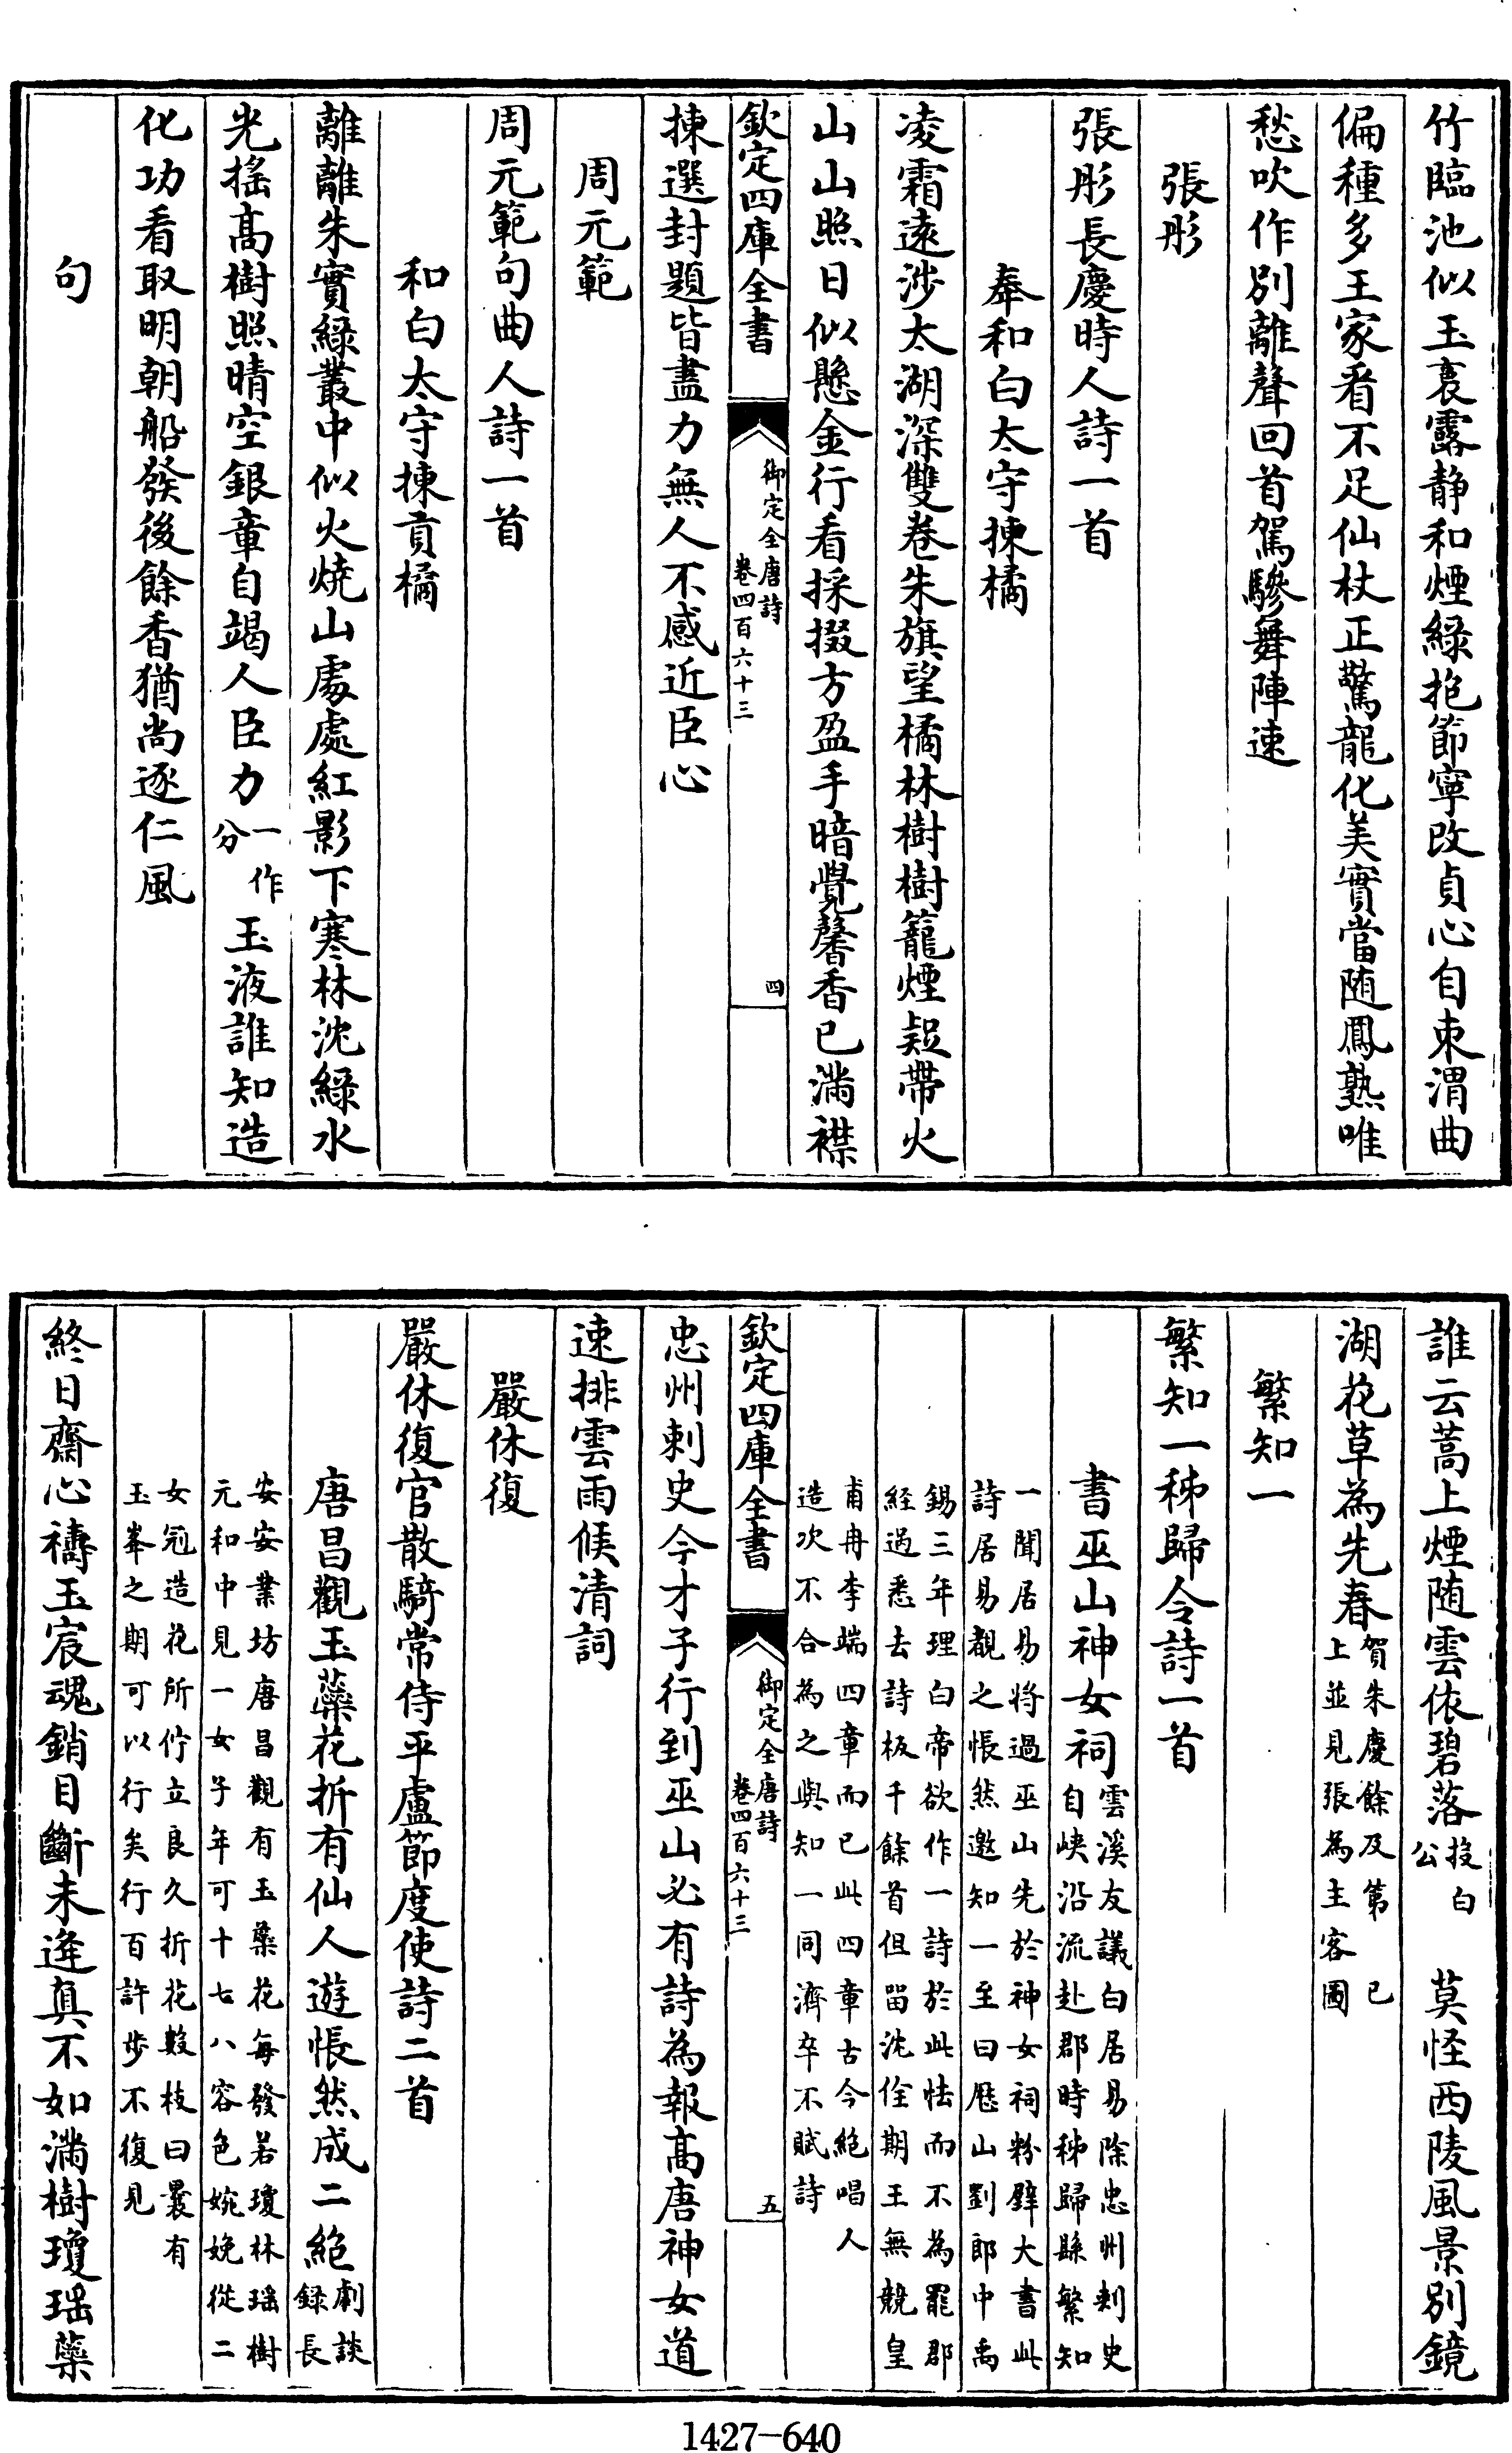 竹臨池似玉裛露静和煙緑抱節寧改貞心自束渭曲
偏種多王家看不足仙杖正驚龍化美實當随鳳熟唯
愁吹作別離聲回首駕驂舞陣速
張彤
張彤長慶時人詩一首
奉和白太守揀橘
凌霜遠涉太湖深雙卷朱旗望橘林樹樹籠煙疑帶火
山山照日似懸金行看採掇方盈手暗覺馨香已滿襟
欽定四庫全書
御定全唐詩
卷四百六十三
四
揀選封題皆盡力無人不感近臣心
周元範
周元範句曲人詩一首
和白太守揀貢橘
離離朱實緑叢中似火燒山處處紅影下寒林沈緑水
光揺髙樹照晴空銀章自竭人臣力一作分玉液誰知造
化功看取明朝船發後餘香猶尚逐仁風
句
誰云蒿上煙随雲依碧落投白公莫怪西陵風景别鏡
湖花草為先春賀朱慶餘及第已上並見張為主客圖
繁知一
繁知一秭歸令詩一首
書巫山神女祠雲溪友議白居易除忠州刺史自峽沿流赴郡時秭歸縣繁知
一聞居易將過巫山先於神女祠粉壁大書此詩居易覩之悵然邀知一至曰厯山劉郎中禹
錫三年理白帝欲作一詩於此怯而不為罷郡經過悉去詩板千餘首但留沈佺期王無競皇
甫冉李端四章而已此四章古今絶唱人造次不合為之與知一同濟卒不賦詩
欽定四庫全書
御定全唐詩
卷四百六十三
五
忠州刺史今才子行到巫山必有詩為報髙唐神女道
速排雲雨候清詞
嚴休復
嚴休復官散騎常侍平盧節度使詩二首
唐昌觀玉蘂花折有仙人遊悵然成二絶劇談録長
安安業坊唐昌觀有玉蘂花每發若瓊林瑶樹元和中見一女子年可十七八容色婉娩從二
女冠造花所佇立良久折花數枝曰曩有玉峯之期可以行矣行百許歩不復見
終日齋心禱玉宸魂銷目斷未逢真不如滿樹瓊瑶蘂
1427-640